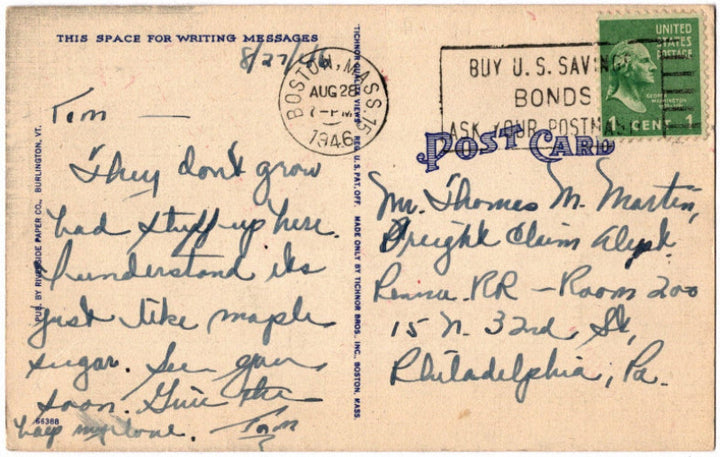 THIS SPACE FOR WRITING MESSAGES
8/27/46
Tom —
They don't grow
bad stuff up here.
I understand its
just like maple
sugar. See you
soon. Give the
boys my love. Tom
PUB. BY RIVERSIDE PAPER CO., BURLINGTON, VT.
66388
TICHNOR QUALITY VIEWS REG. U.S. PAT. OFF. MADE ONLY BY TICHNOR BROS. INC., BOSTON, MASS.
BOSTON, MASS. 15
AUG 28
7-PM
1946
BUY U.S. SAVINGS
BONDS
ASK YOUR POSTMASTER
UNITED
STATES
POSTAGE
GEORGE
WASHINGTON
1 CENT 1
POST CARD
Mr. Thomas M. Martin,
Freight Claim Dept.
Penna RR — Room 200
15 N. 32nd St,
Philadelphia, Pa.